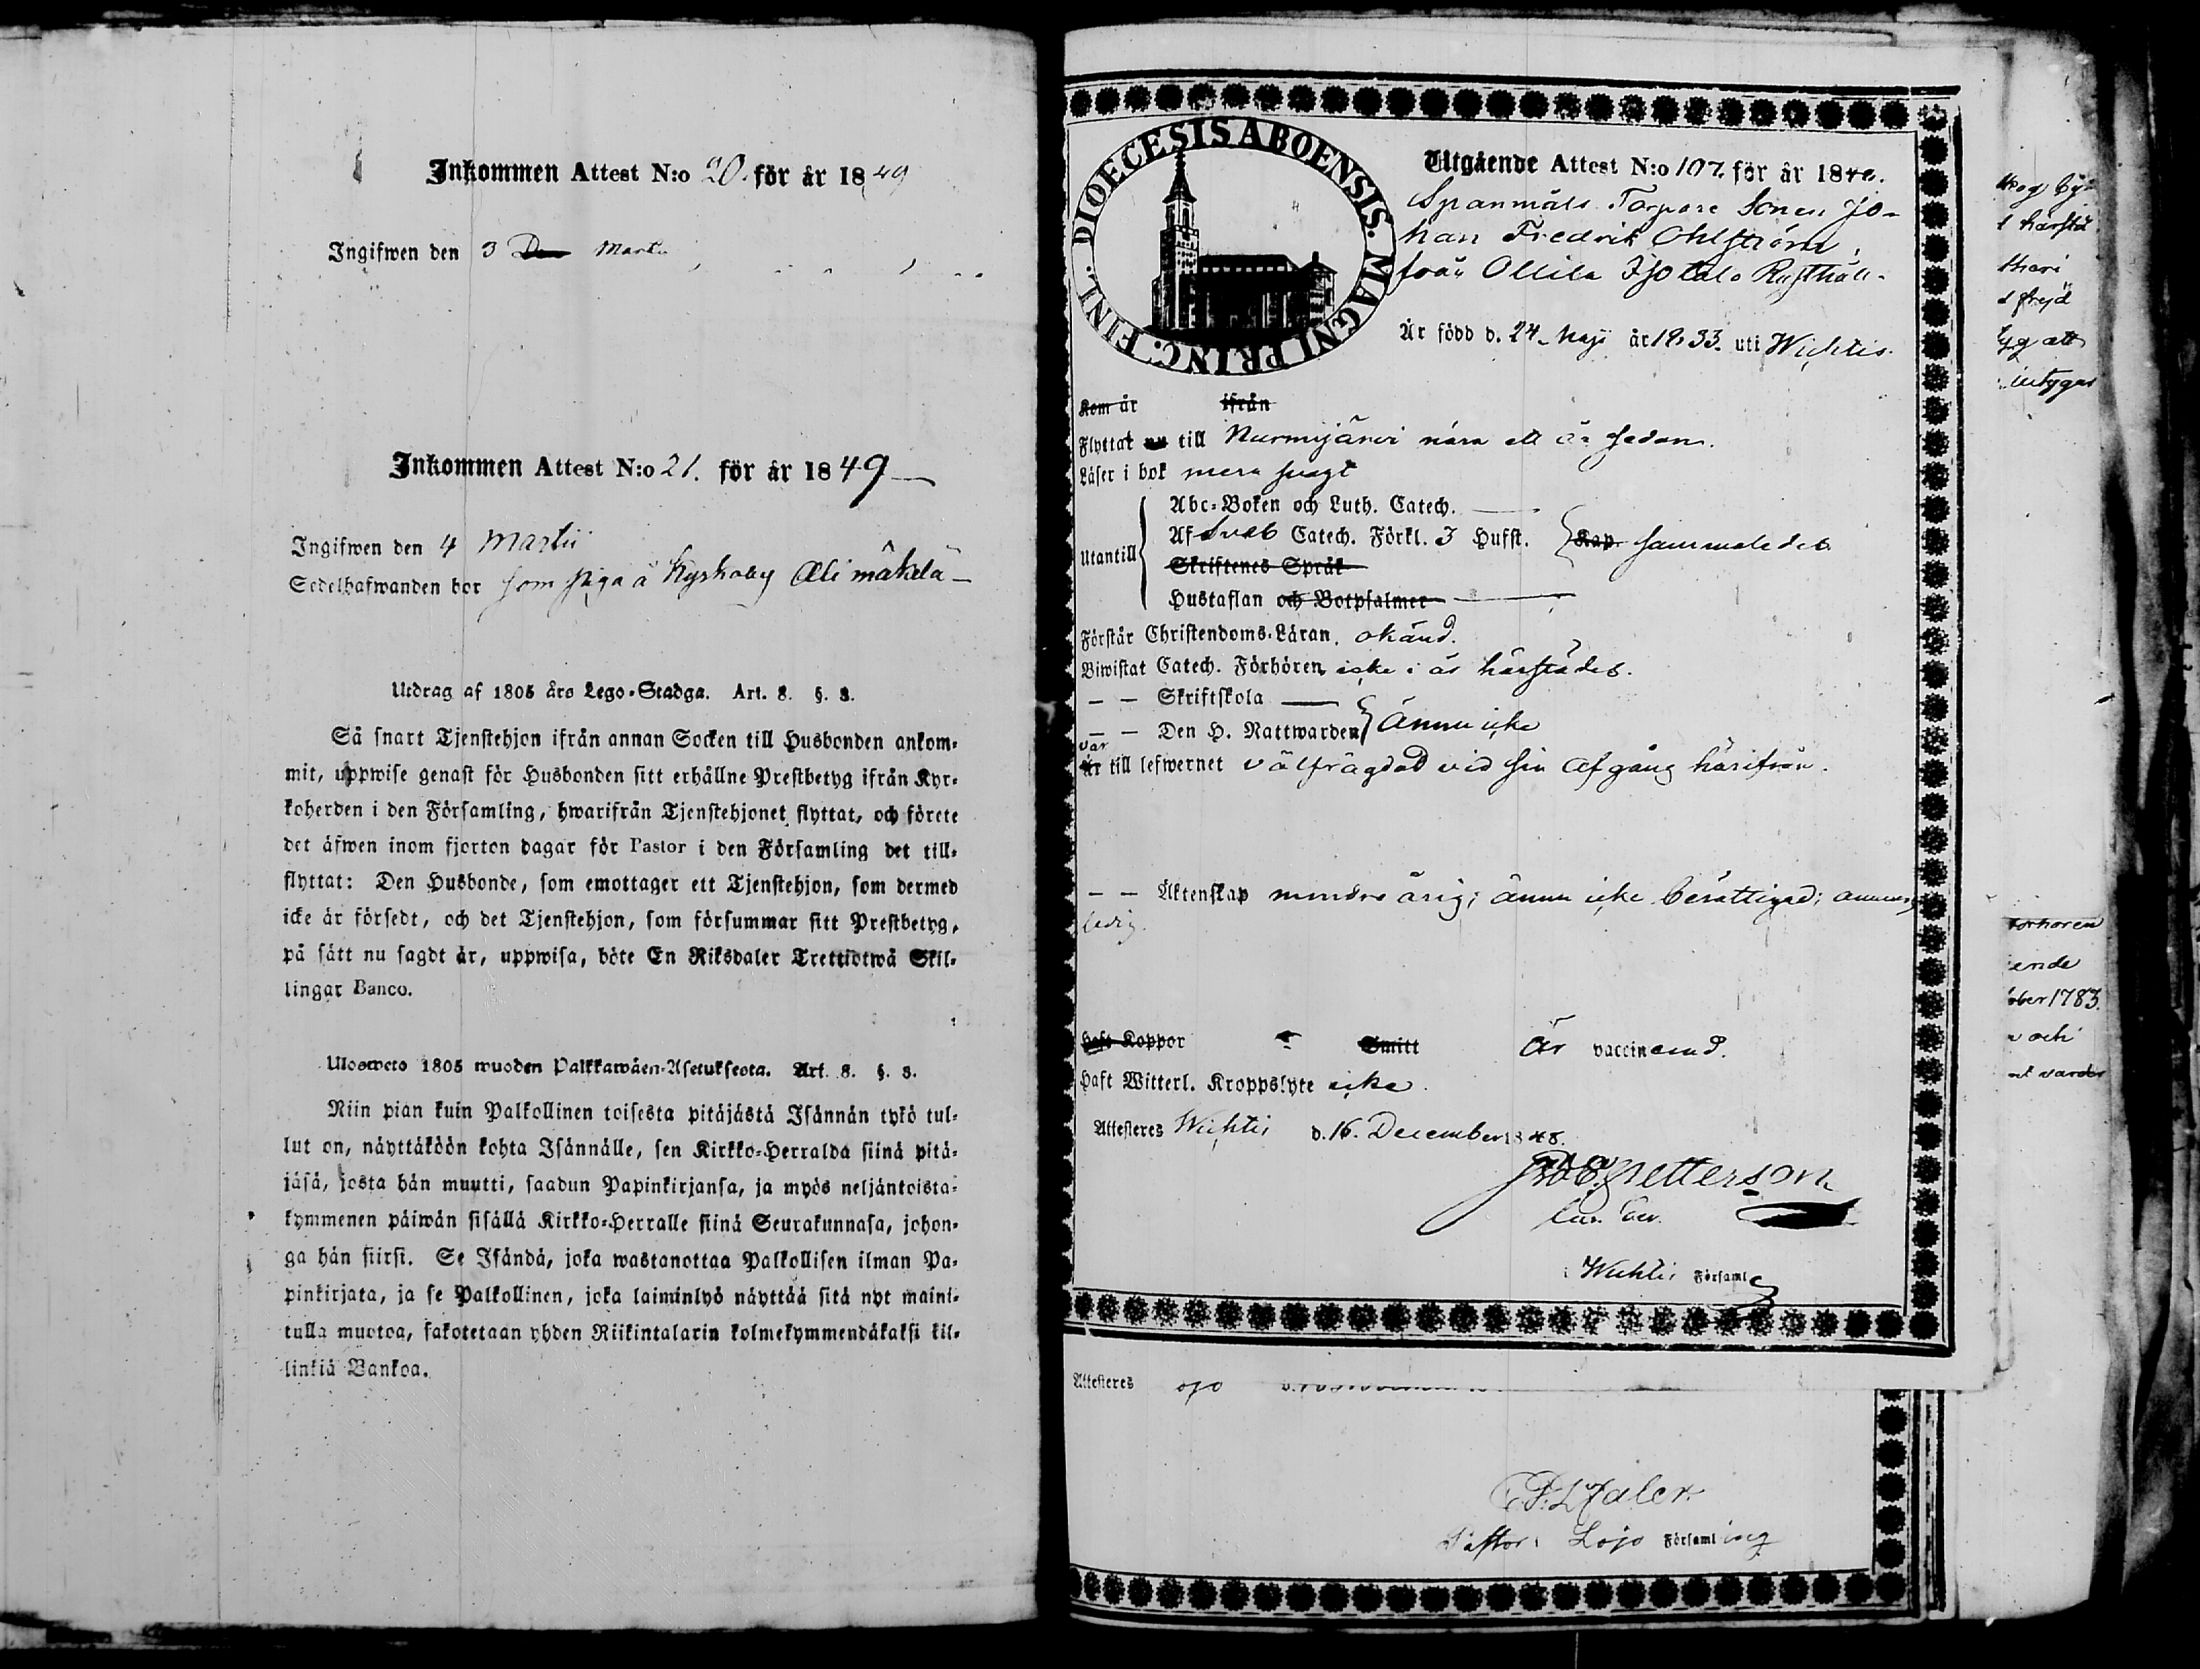 Inkommen Attest N:o 20. för år 1849
Ingifwen den 3 Martii
Inkommen Attest N:o 21. för år 1849
Ingifwen den 4 Martii
Sedelhafwanden bor som piga å Kyrkoby Ali mäkelä
Utdrag af 1805 års Lego-Stadga. Art. 8. §. 8.
Så snart Tjenstehjon ifrån annan Socken till Husbonden ankom-
mit, uppwise genast för Husbonden sitt erhållne Prestbetyg ifrån Kyr-
koherden i den Församling, hwarifrån Tjenstehjonet flyttat, och förete
det äfwen inom fjorton dagar för Pastor i den Församling det till-
flyttat: Den Husbonde, som emottager ett Tjenstehjon, som dermed
icke är försedt, och det Tjenstehjon, som försummar sitt Prestbetyg,
på sätt nu sagdt är, uppwisa, böte En Riksdaler Trettiotwå Skil-
lingar Banco.
Ulosweto 1805 wuoden Palkkawäen-Asetuksesta. Art. 8. §. 8.
Niin pian kuin Palkollinen toisesta pitäjästä Isännän tykö tul-
lut on, näyttäköön kohta Isännälle, sen Kirkko-Herralda siinä pitä-
jäsä, josta hän muutti, saadun Papinkirjansa, ja myös neljäntoista-
kymmenen päiwän sisällä Kirkko-Herralle siinä Seurakunnasa, johon-
ga hän siirsi. Se Isändä, joka wastanottaa Palkollisen ilman Pa-
pinkirjata, ja se Palkollinen, joka laiminlyö näyttää sitä nyt maini-
tulla muotoa, sakotetaan yhden Riikintalarin kolmekymmendäkaksi kil-
linkiä Bankoa.
DIOECESIS ABOENSIS. MAGNI PRINC. FINL.
Utgående Attest N:o 107. för år 18
Spanmåls Torpare Sonen Jo-
han Fredrik Ohlström,
från Ollila Isotalo Rusthåll.
Är född d. 24 Maji år 1833. uti Wichtis.
Kom år ifrån
Flyttat nu till Nurmijärvi nära ett år sedan.
Läser i bok mera svagt
Utantill
Abc-Boken och Luth. Catech.
Af Sveb Catech. Förkl. 3 Hufst. Kap. sammaledes
Skriftenes Språk
Hustaflan och Botpsalmer
Förstår Christendoms-Läran. okänd.
Biwistat Catech. Förhören icke i år härstädes.
— — Skriftskola
— — Den H. Nattwarden ännu icke
var
Är till lefwernet välfrägdad vid sin afgång härifrån.
— — Äktenskap mindre årig; ännu icke berättigad; annars
ledig.
Haft Koppor Smitt Är vaccinerad.
Haft Witterl. Kroppslyte icke.
Attesteres Wichtis d. 16. December 1848.
Petterson
i Wichtis Församl
Attesteres ojo
Pastor i Lojo Församling
härstä
yg att
intygas
förhören
ende
ober 1783.
och